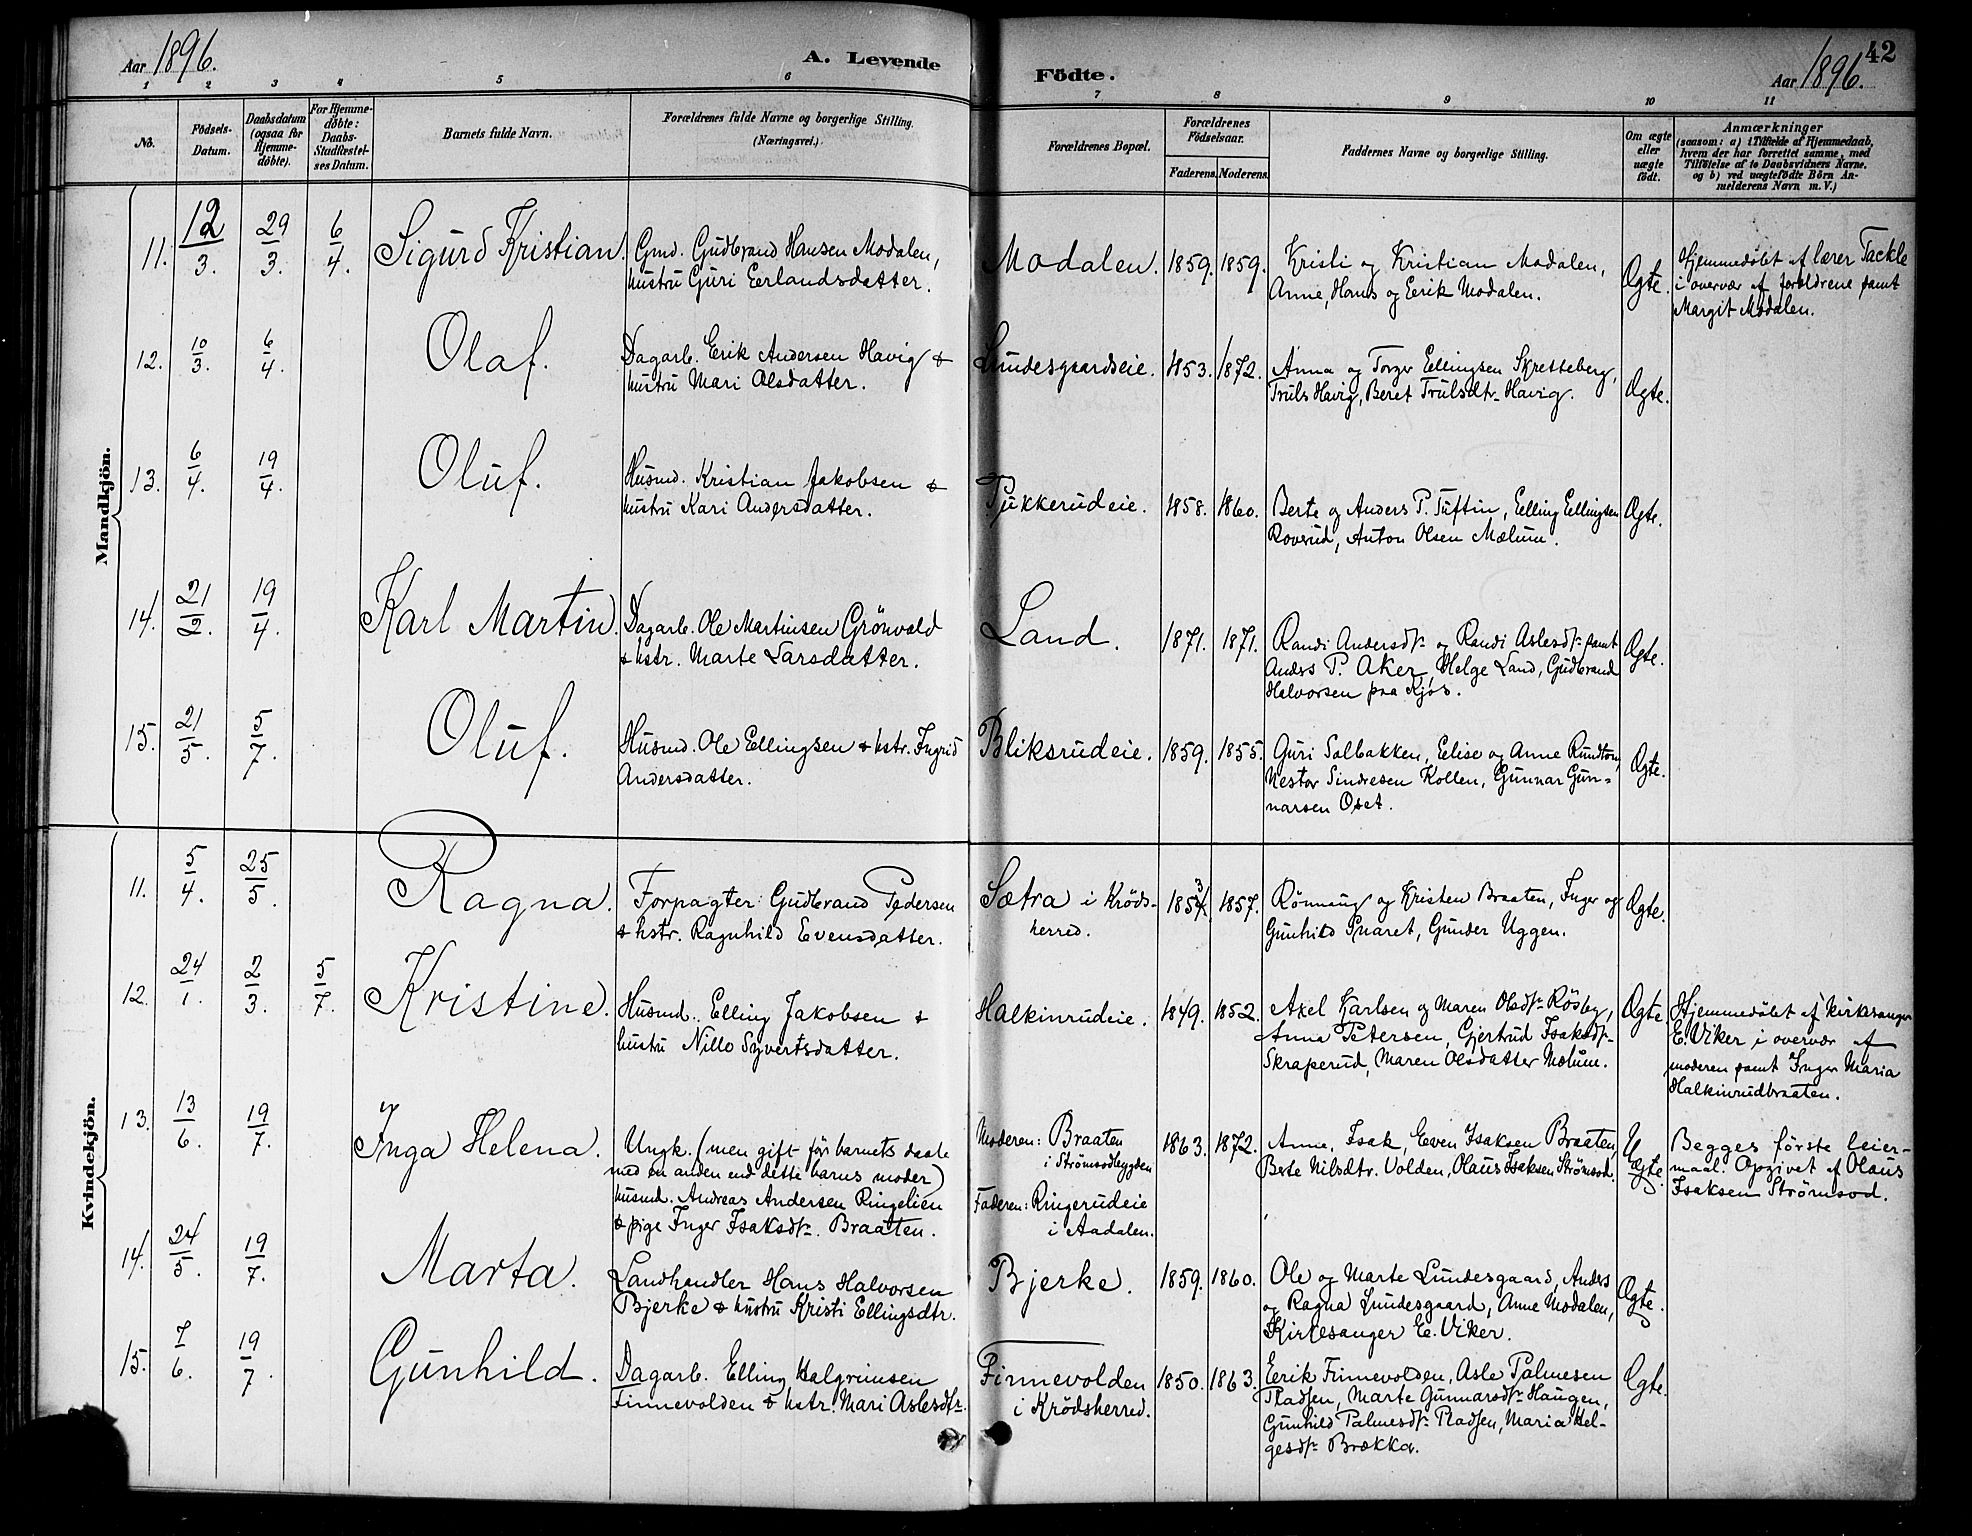 Aar 1896.
A. Levende
Födte.
Aar 1896.
42
1 2 3 4 5 6 7 8 9 10 11
No.
Födsels-
Datum.
Daabsdatum
(ogsaa for
Hjemme-
döbte).
For Hjemme-
döbte:
Daabs-
Stadfæstel-
ses Datum.
Barnets fulde Navn.
Forældrenes fulde Navne og borgerlige Stilling.
(Næringsvei.)
Forældrenes Bopæl.
Forældrenes
Födselsaar.
Faderens. Moderens.
Faddernes Navne og borgerlige Stilling.
Om ægte
eller
uægte
født.
Anmærkninger
(saasom: a) i Tilfælde af Hjemmedaab,
hvem der har forrettet samme, med
Tilföielse af to Daabsvidners Navne.
og b) ved uægtefödte Börn An-
melderens Navn m. V.)
Mandkjön.
11. 12/3. 29/3. 6/4. Sigurd Kristian. Gmd. Gudbrand Hansen Modalen,
hustru Guri Eerlandsdatter.
Modalen. 1859. 1859. Kristi og Kristian Modalen,
Anne, Hans og Eerik Modalen.
Ægte.
Hjemmedöbt af lærer Tackle
i overvær af forældrene samt
Margit Modalen.
12. 10/3. 6/4. Olaf. Dagarb. Erik Andersen Havig &
hustru Mari Olsdatter.
Lundesgaardseie. 1853. 1872. Anna og Torger Eellingsen Skretteberg,
Truls Havig, Beret Trulsdtr. Havig.
Ægte.
13. 6/4. 19/4. Oluf. Husmd. Kristian Jakobsen &
hustru Kari Andersdatter.
Tjukkerudeie. 1858. 1860. Berte og Anders P. Tuftin, Eelling Eellingsen
Roverud, Anton Olsen Mælum.
Ægte.
14. 21/2. 19/4. Karl Martin. Dagarb. Ole Martinsen Grönvold
& hstr. Marte Larsdatter.
Land. 1871. 1871. Randi Andersdtr. og Randi Aslesdtr. samt
Anders P. Aker, Helge Land, Gudbrand
Halvorsen paa Kjøs.
Ægte.
15. 21/5. 5/7. Oluf. Husmd. Ole Ellingsen & hstr. Ingrid
Andersdatter.
Bliksrudeie. 1859. 1855. Guri Solbakken, Eelise og Anne Rundtom,
Nestor Sindresen Kollen, Gunnar Gun-
narsen Oset.
Ægte.
Kvindekjön.
11. 5/4. 25/5. Ragna. Forpagter Gudbrand Pedersen
& hstr. Ragnhild Evensdatter.
Sætra i Kröds-
herred.
1853. 1857. Rönnaug og Kristen Braaten, Inger og
Gunhild Snaret, Gunder Uggen.
Ægte.
12. 24/1. 2/3. 5/7. Kristine. Husmd. Elling Jakobsen &
hustru Nillo Syvertsdatter.
Halkinrudeie. 1849. 1852. Axel Karlsen og Maren Olsdtr. Rösby,
Anna Petersen, Gjertrud Isaksdtr.
Skraperud, Maren Olsdatter Mælum.
Ægte
Hjemmedöbt af kirkesanger
E. Viker i overvær af
moderen samt Inger Maria
Halkinrudbraaten.
13. 13/6. 19/7. Inga Helena. Ungk. (men gift för barnets daab
med en anden end dette barns moder)
husmd. Andreas Andersen Ringelien
& pige Inger Isaksdtr. Braaten.
Moderen: Braaten
i Strömsodbygden
Faderen: Ringerudeie
i Aadalen.
1863. 1872. Anne, Isak, Even Isaksen Braaten,
Berte Nilsdtr. Volden, Olaus Isaksen Strömsod.
Uægte.
Begges förste leier-
maal. Opgivet af Olaus
Isaksen Strömsod.
14. 24/5. 19/7. Marta. Landhandler Hans Halvorsen
Bjerke & hustru Kristi Ellingsdtr.
Bjerke. 1859. 1860. Ole og Marte Lundesgaard, Anders
og Ragna Lundesgaard, Anne Modalen,
Kirkesanger E. Viker.
Ægte.
15. 7/6. 19/7. Gunhild. Dagarb. Elling Halgrimsen
Finnevolden & hstr. Mari Aslesdtr.
Finnevolden
i Krödsherred.
1850. 1863. Eerik Finnevolden, Asle Palmesen
Pladsen, Marte Gunnarsdtr. Haugen,
Gunhild Palmesdtr. Pladsen, Maria Hel-
gesdtr. Brækka.
Ægte.